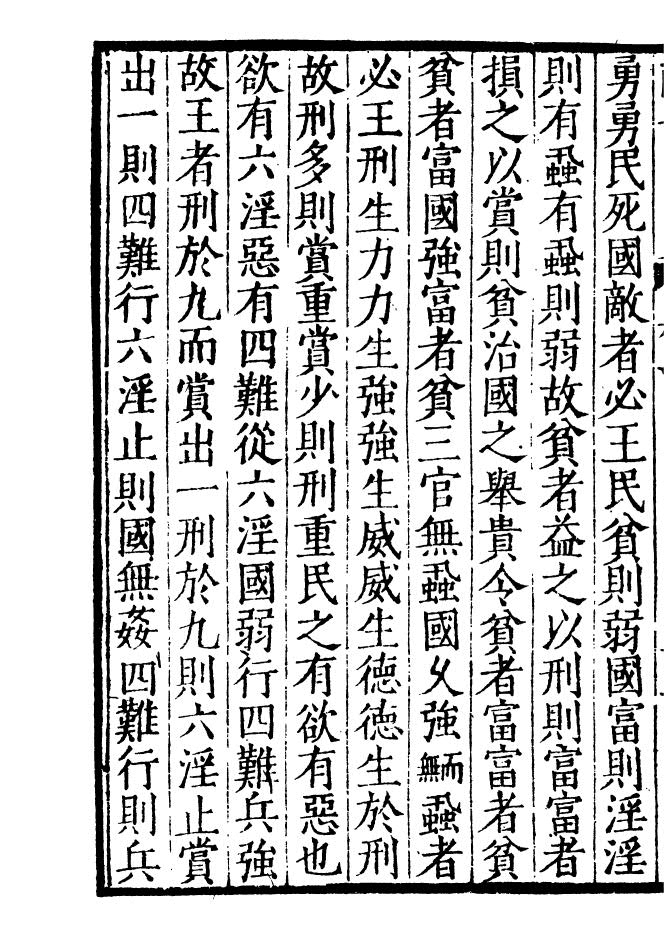 勇勇民死國敵者必王民貧則弱國富則淫淫
則有蝨有蝨則弱故貧者益之以刑則富富者
損之以賞則貧治國之舉貴令貧者富富者貧
貧者富國強富者貧三官無蝨國乆強而無蝨者
必王刑生力力生強強生威威生德德生於刑
故刑多則賞重賞少則刑重民之有欲有惡也
欲有六淫惡有四難從六淫國弱行四難兵強
故王者刑於九而賞出一刑於九則六淫止賞
出一則四難行六淫止則國無姦四難行則兵